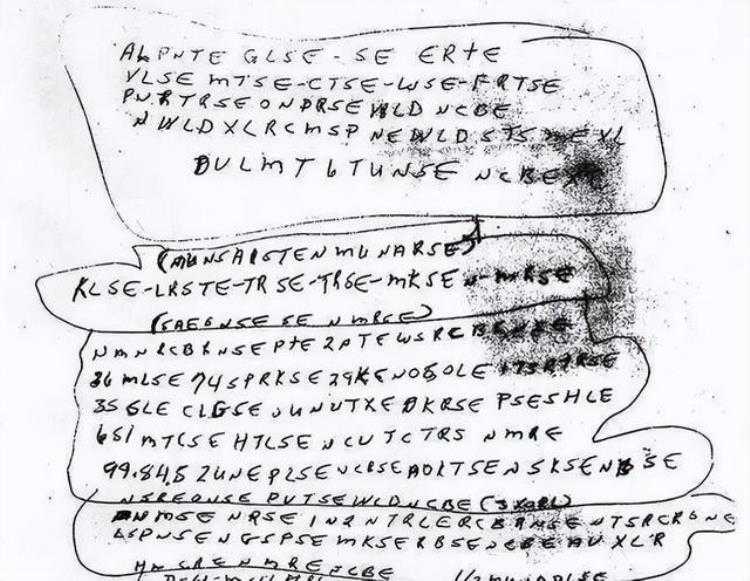 ALPNTE GLSE - SE ERTE
VLSE MTSE-CTSE-WSE-FRTSE
PNRTRSE ONPRSE WLD NCBE
NWLDXLRCMSP NEWLDSTS ME XL
DULMT 6 TUNSE NCBE
(MUNSAISTEN MUNARSE)
KLSE-LRSTE-TRSE-TRSE-MKSEN-MRSE
(SAEGNSE SE N MRSE)
NMNRCBRNSE PTE 2PTEWSRCB
36 MLSE 74SPRKSE 29KENOSOLE
35 GLE CLGSE UUNUTXE DKRSE PSESHLE
651 MTCSE HTLSE NCUTCTRS NMRE
99.84.5 2UNEPLSE NCRSE AOLTSE NSKSE
NSREONSE PUTSE WLD NCBE (3XORL)
NMSE NRSE IN2NTRLERCBRNSE NTSRCRSNE
LSPNSE NGSPSE MKSERBSE NCBE AUXLR
NMRE NCBE